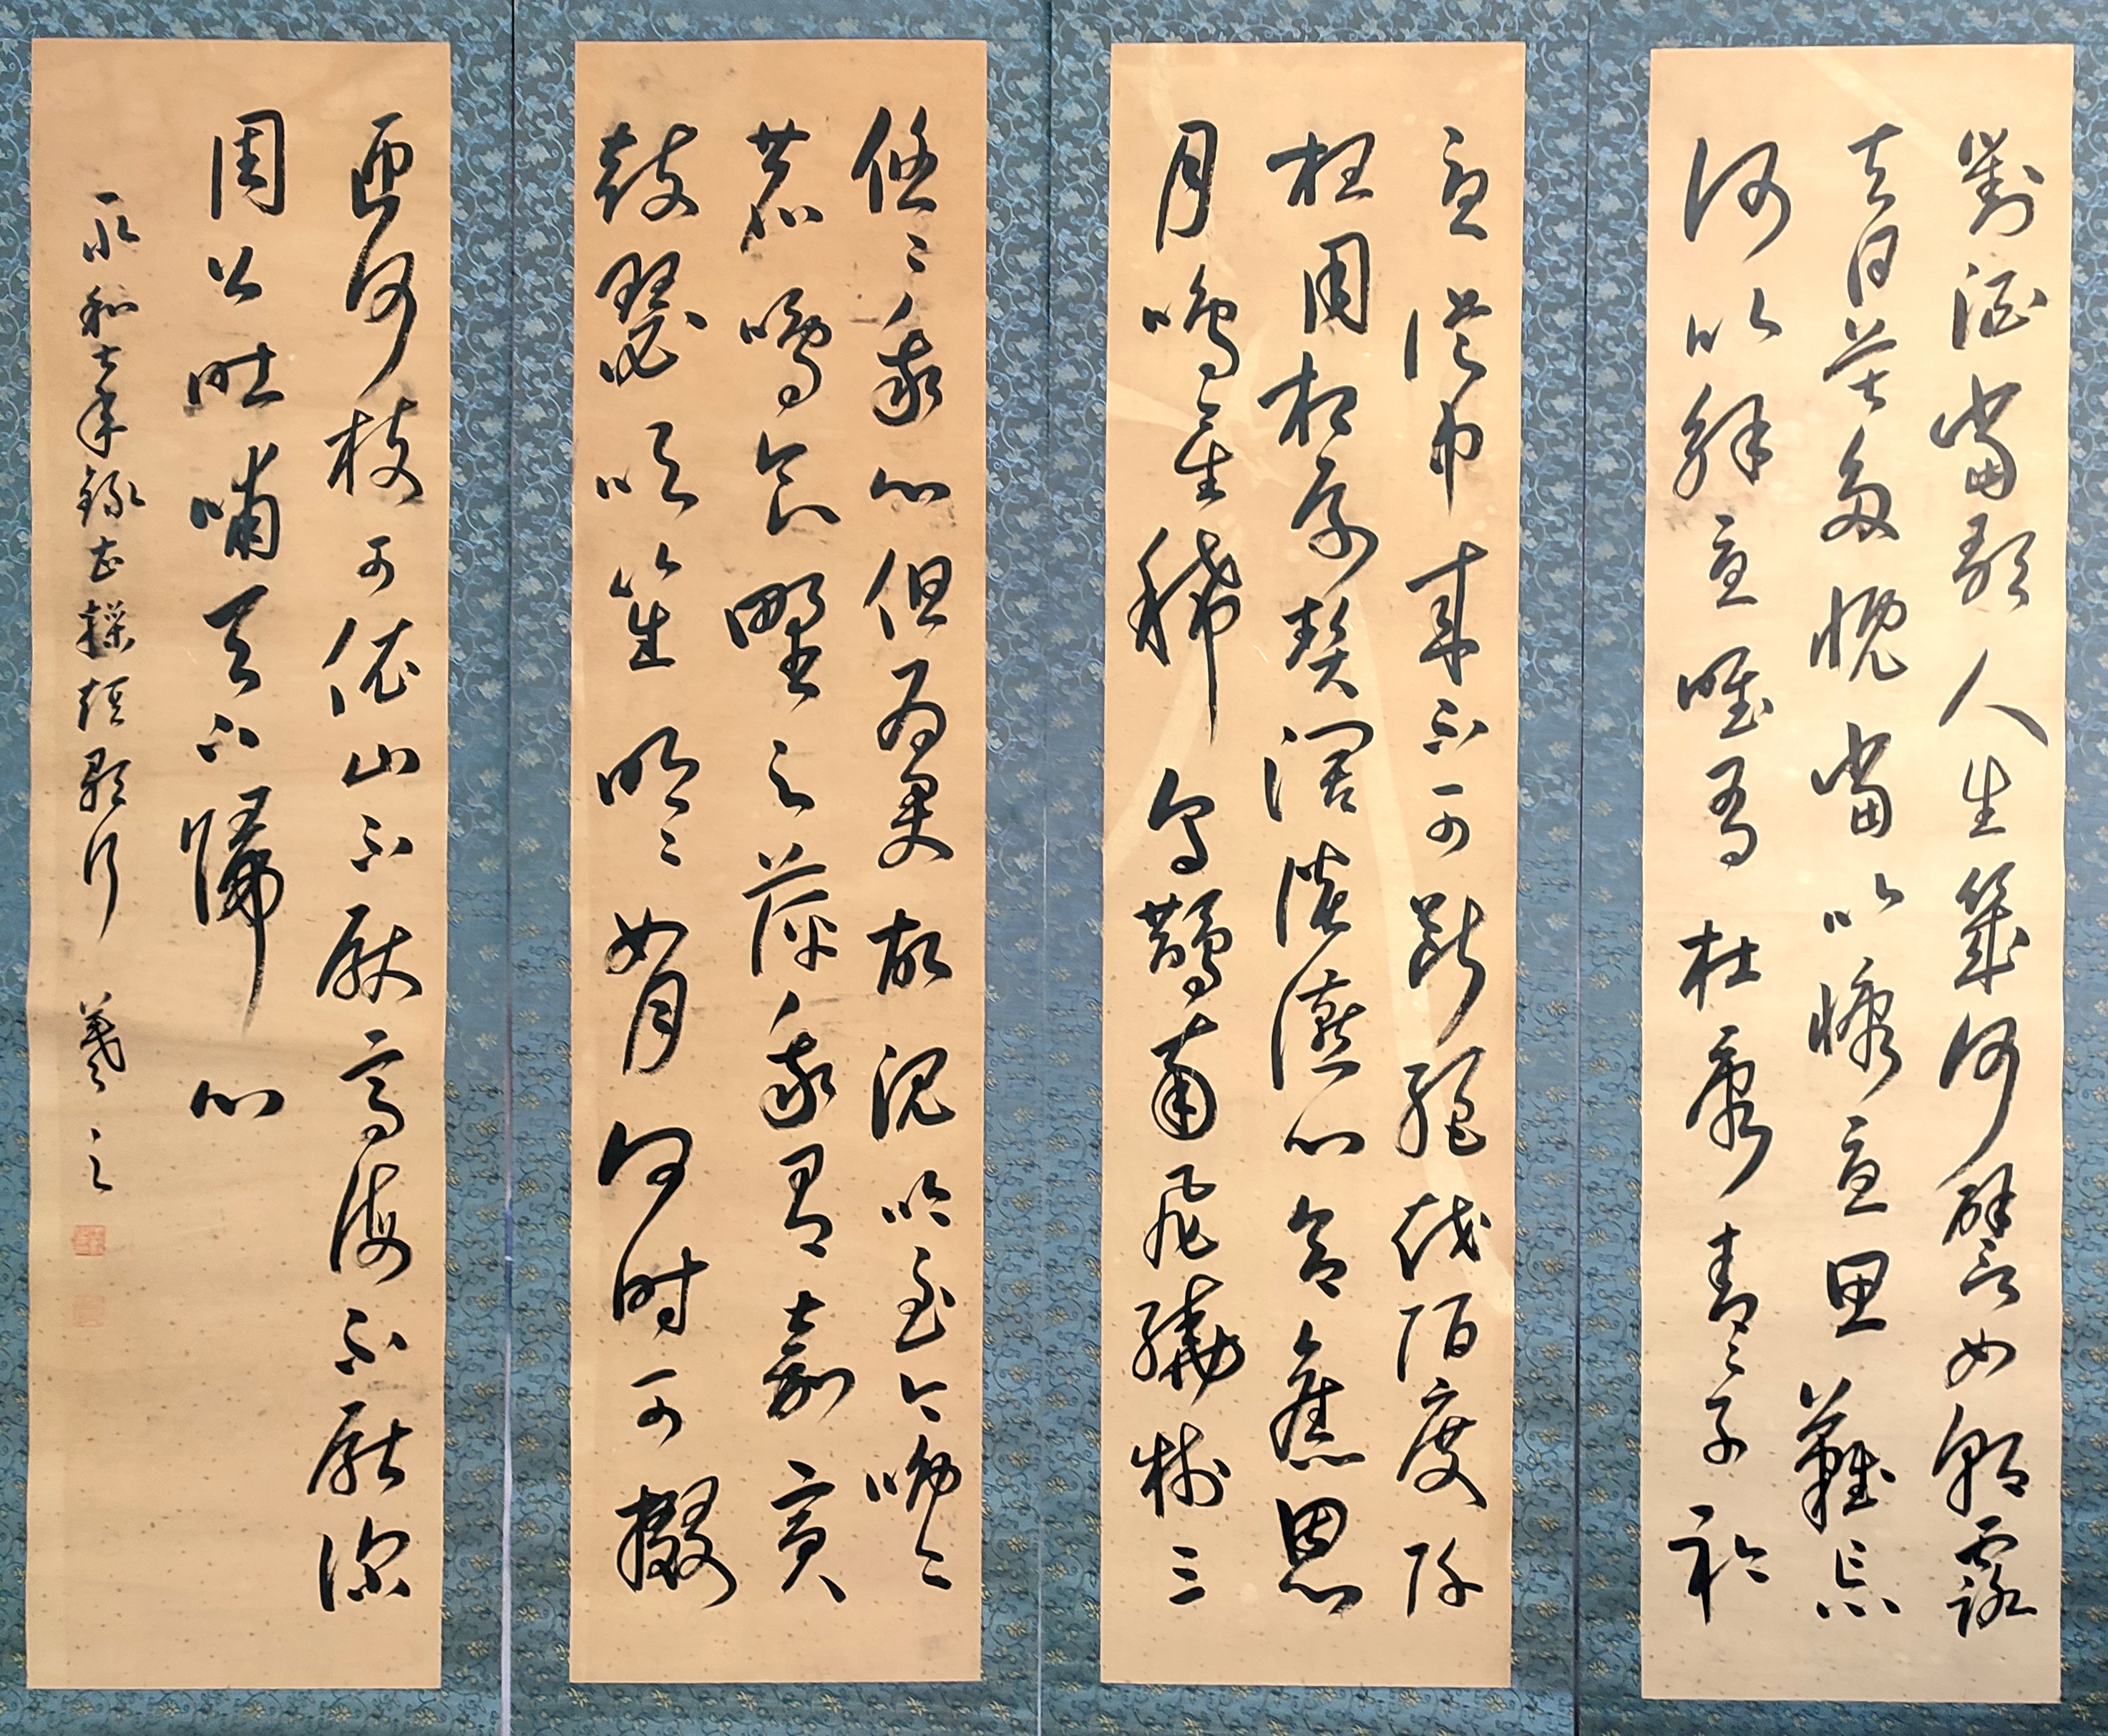 對酒當歌人生幾何譬如朝露
去日苦多慨當以慷憂思難忘
何以解憂唯有杜康青〻子衿
憂從中來不可斷絕越陌度阡
枉用相存契闊談讌心念舊恩
月鳴星稀烏鵲南飛繞樹三
悠〻我心但為君故沈吟至今呦〻
鹿鳴食野之苹我有嘉賓
鼓瑟吹笙明〻如月何時可掇
匝何枝可依山不厭高海不厭深
周公吐哺天下歸心
永和七年錄曹操短歌行 羲之